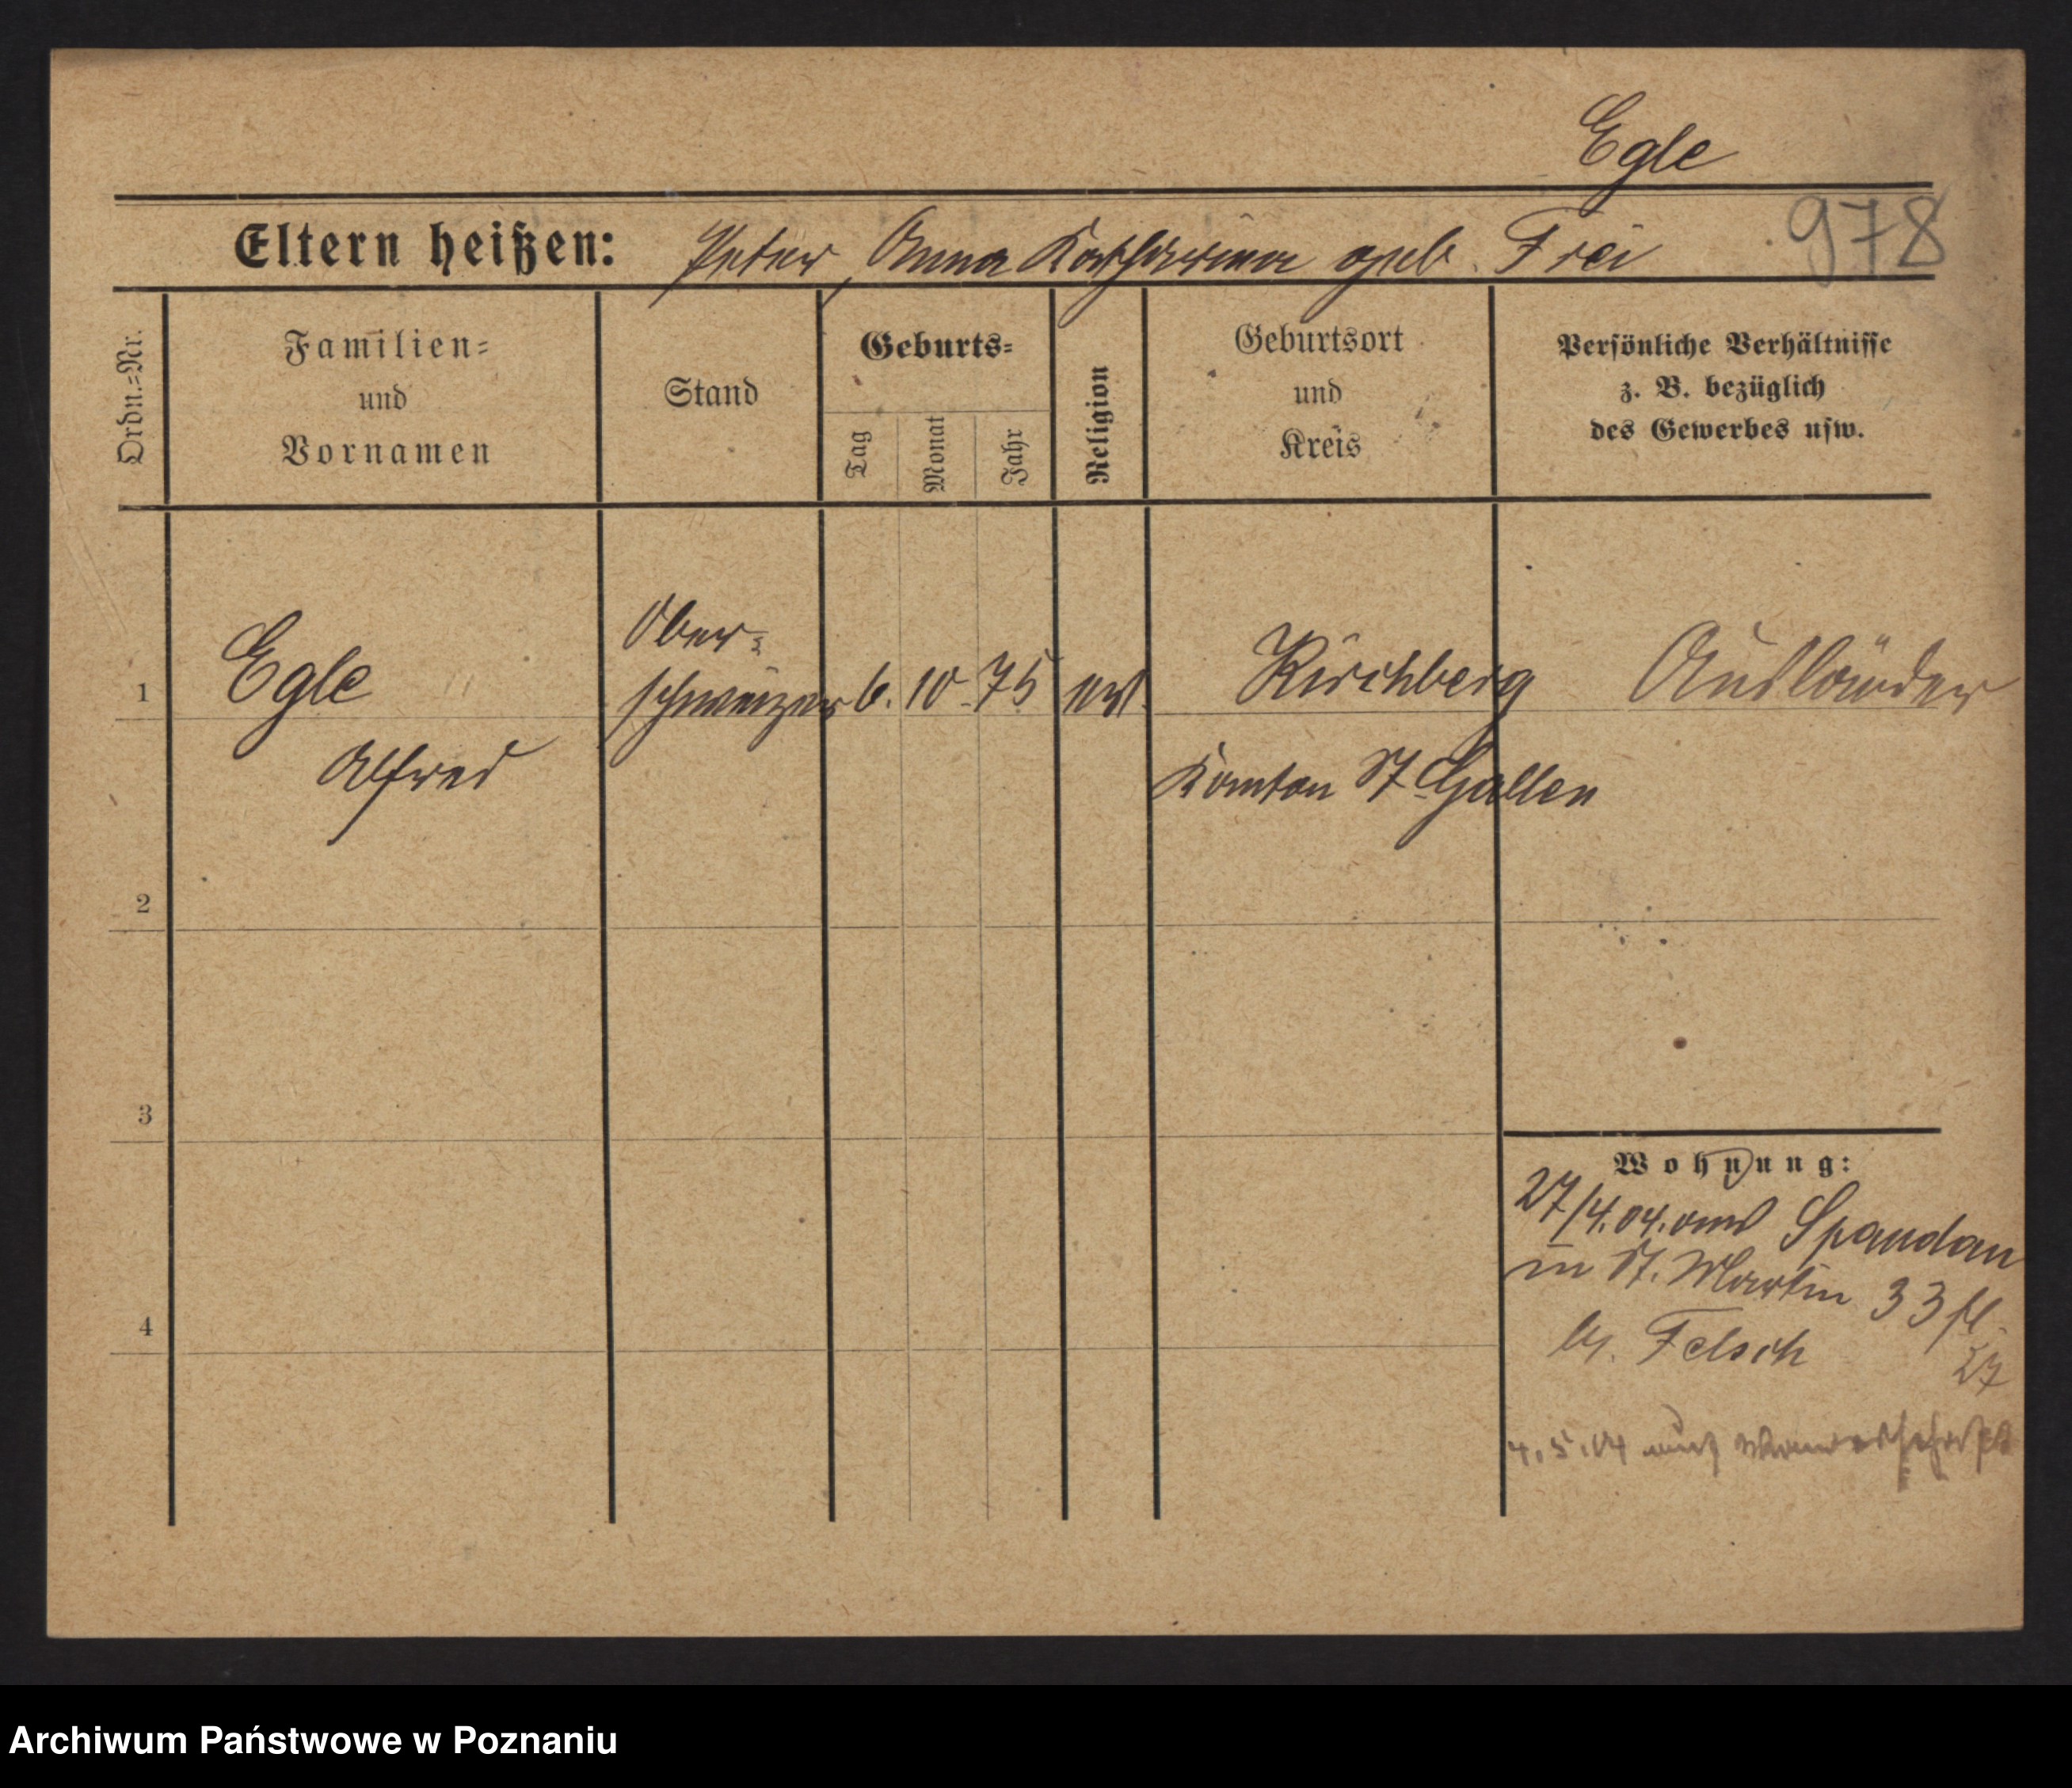 Egle
Eltern heißen: Peter, Anna Katharina geb. Frei
978
Ordn.=Nr.
Familien=
und
Vornamen
Stand
Geburts=
Tag
Monat
Jahr
Religion
Geburtsort
und
Kreis
Persönliche Verhältnisse
z. B. bezüglich
des Gewerbes usw.
1
Egle
Alfred
Ober=
schweizer
6. 10. 75
Kirchberg
Kanton St. Gallen
Ausländer
2
3
4
Wohnung:
27/4.04. aus Spandau
in St. Martin 33
b. Felsch
27
4.5.04 nach
Archiwum Państwowe w Poznaniu